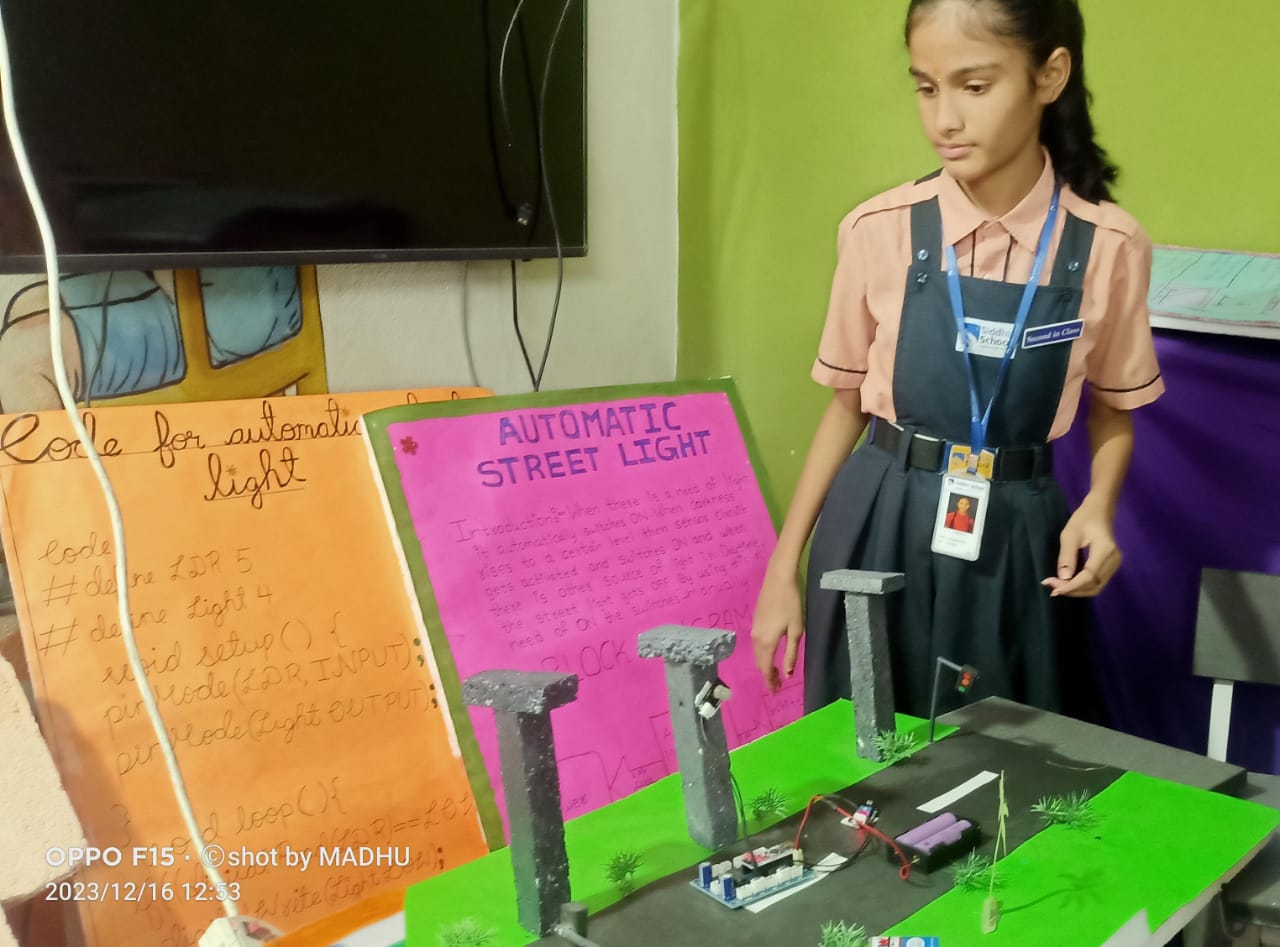 Code for automatic
light
Code
# define LDR 5
# define Light 4
void setup() {
pinMode(LDR, INPUT);
pinMode(Light OUTPUT);
}
void loop(){
AUTOMATIC
STREET LIGHT
Introduction:- When there is a need of light
it automatically switches ON. When darkness
rises to a certain level then sensor circuit
gets activated and switches ON and when
there is other source of light i.e. Daytime,
the street light gets OFF. By using
need of ON the switches manually
BLOCK
Siddhi
School
Second in Class
OPPO F15 · ©shot by MADHU
2023/12/16 12:53